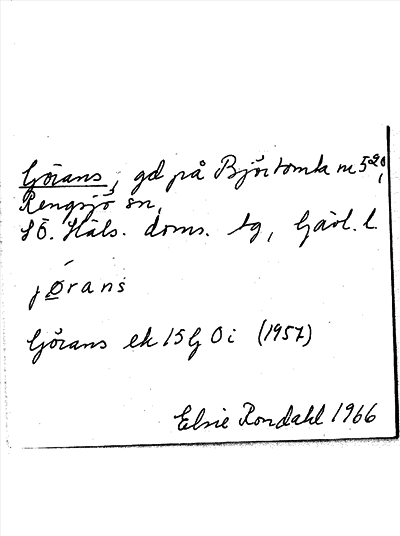 Görans, gd på Björtomta nr 5²⁰,
Rengsjö sn,
SÖ. Häls. doms. tg, Gävl. l.
jørans
Görans ek 15G 0i (1957)
Elsie Rondahl 1966